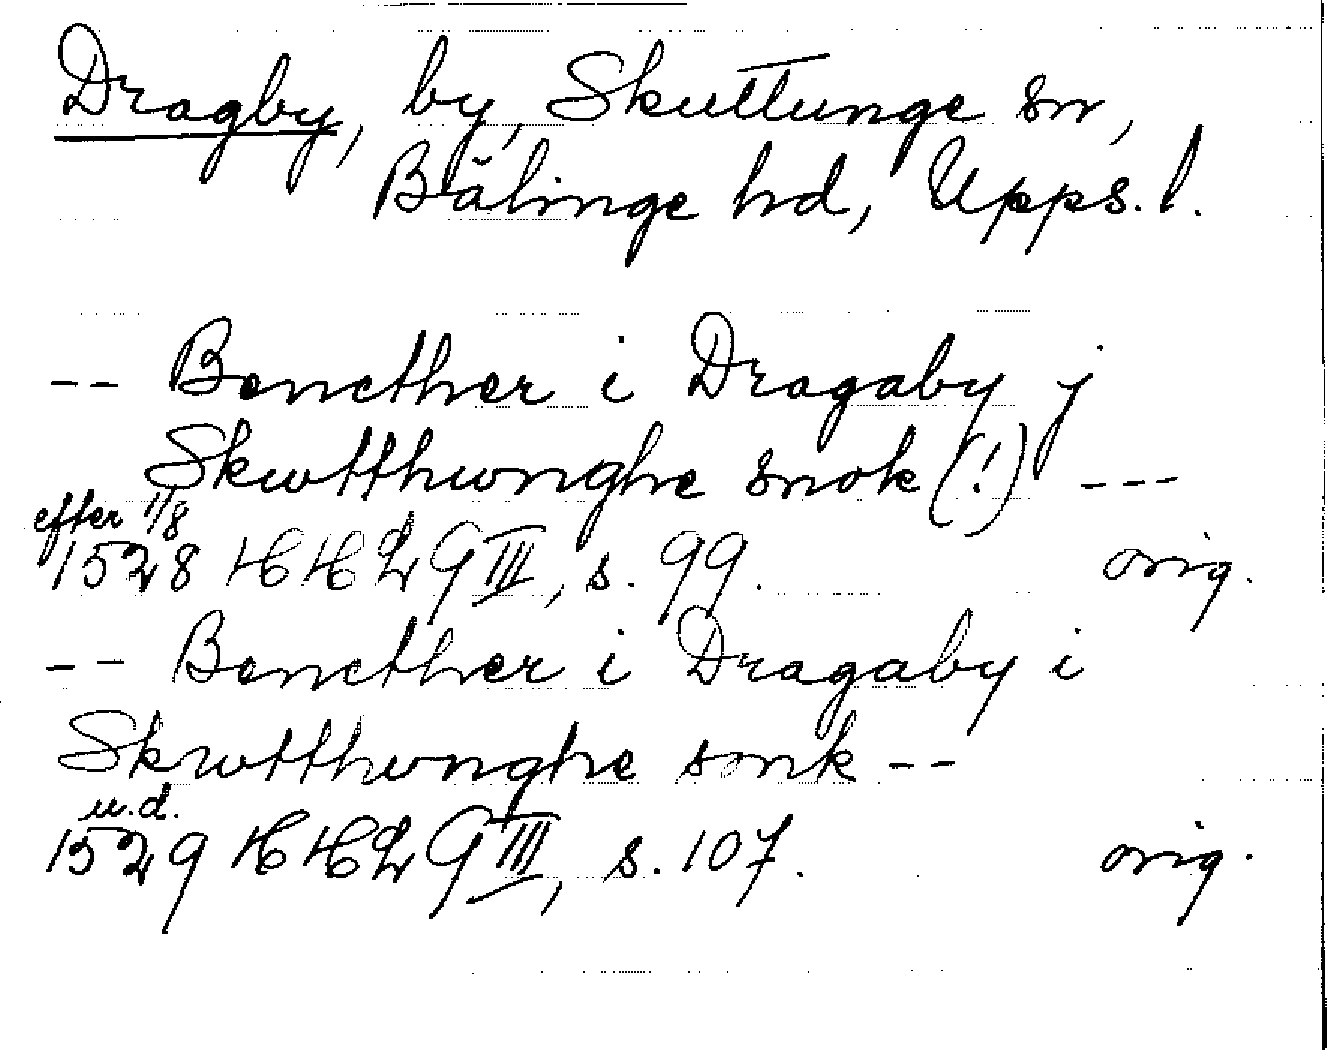 Dragby, by, Skuttunge sn,
Bälinge hd, Upps. l.
-- Bencther i Dragaby j
Skwtthwnghe snok (!) ---
efter 1/8
1528 HHL9 III, s. 99. orig.
-- Bencther i Dragaby i
Skwtthwnghe sonk --
u.d.
1529 HHL9 III, s. 107. orig.